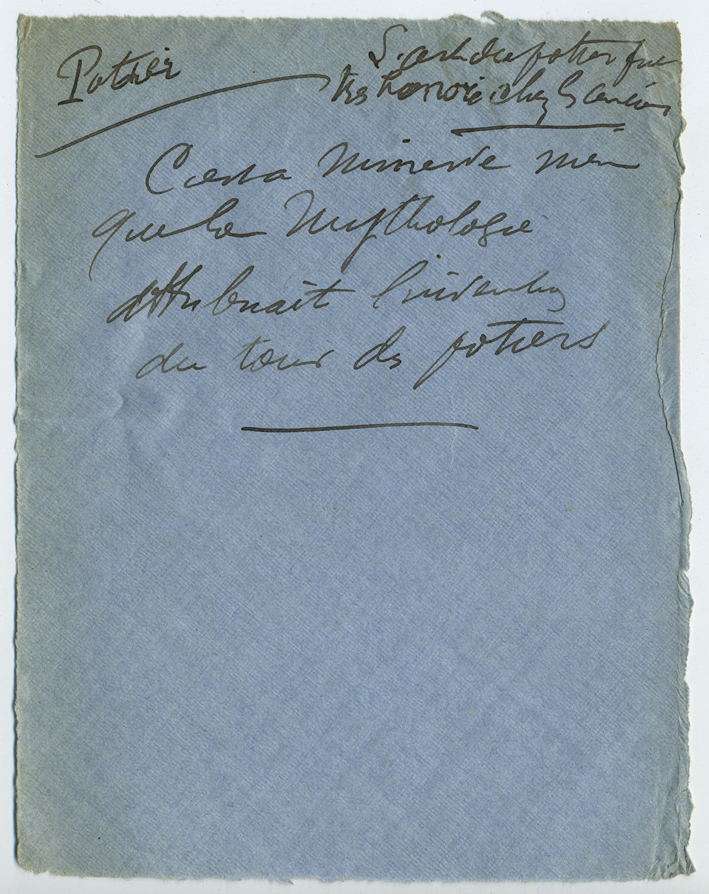 Potier
L'art du potier fut
très honoré chez les anciens
C'est a Minerve mêm
que la Mythologie
attribuait l'invention
du tour des potiers